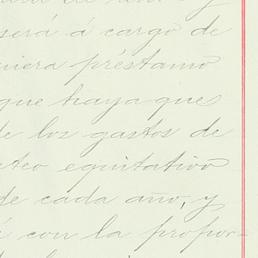 será á cargo de
préstamo
que haya que
de los gastos de
equitativo
de cada año, y
con la propor-